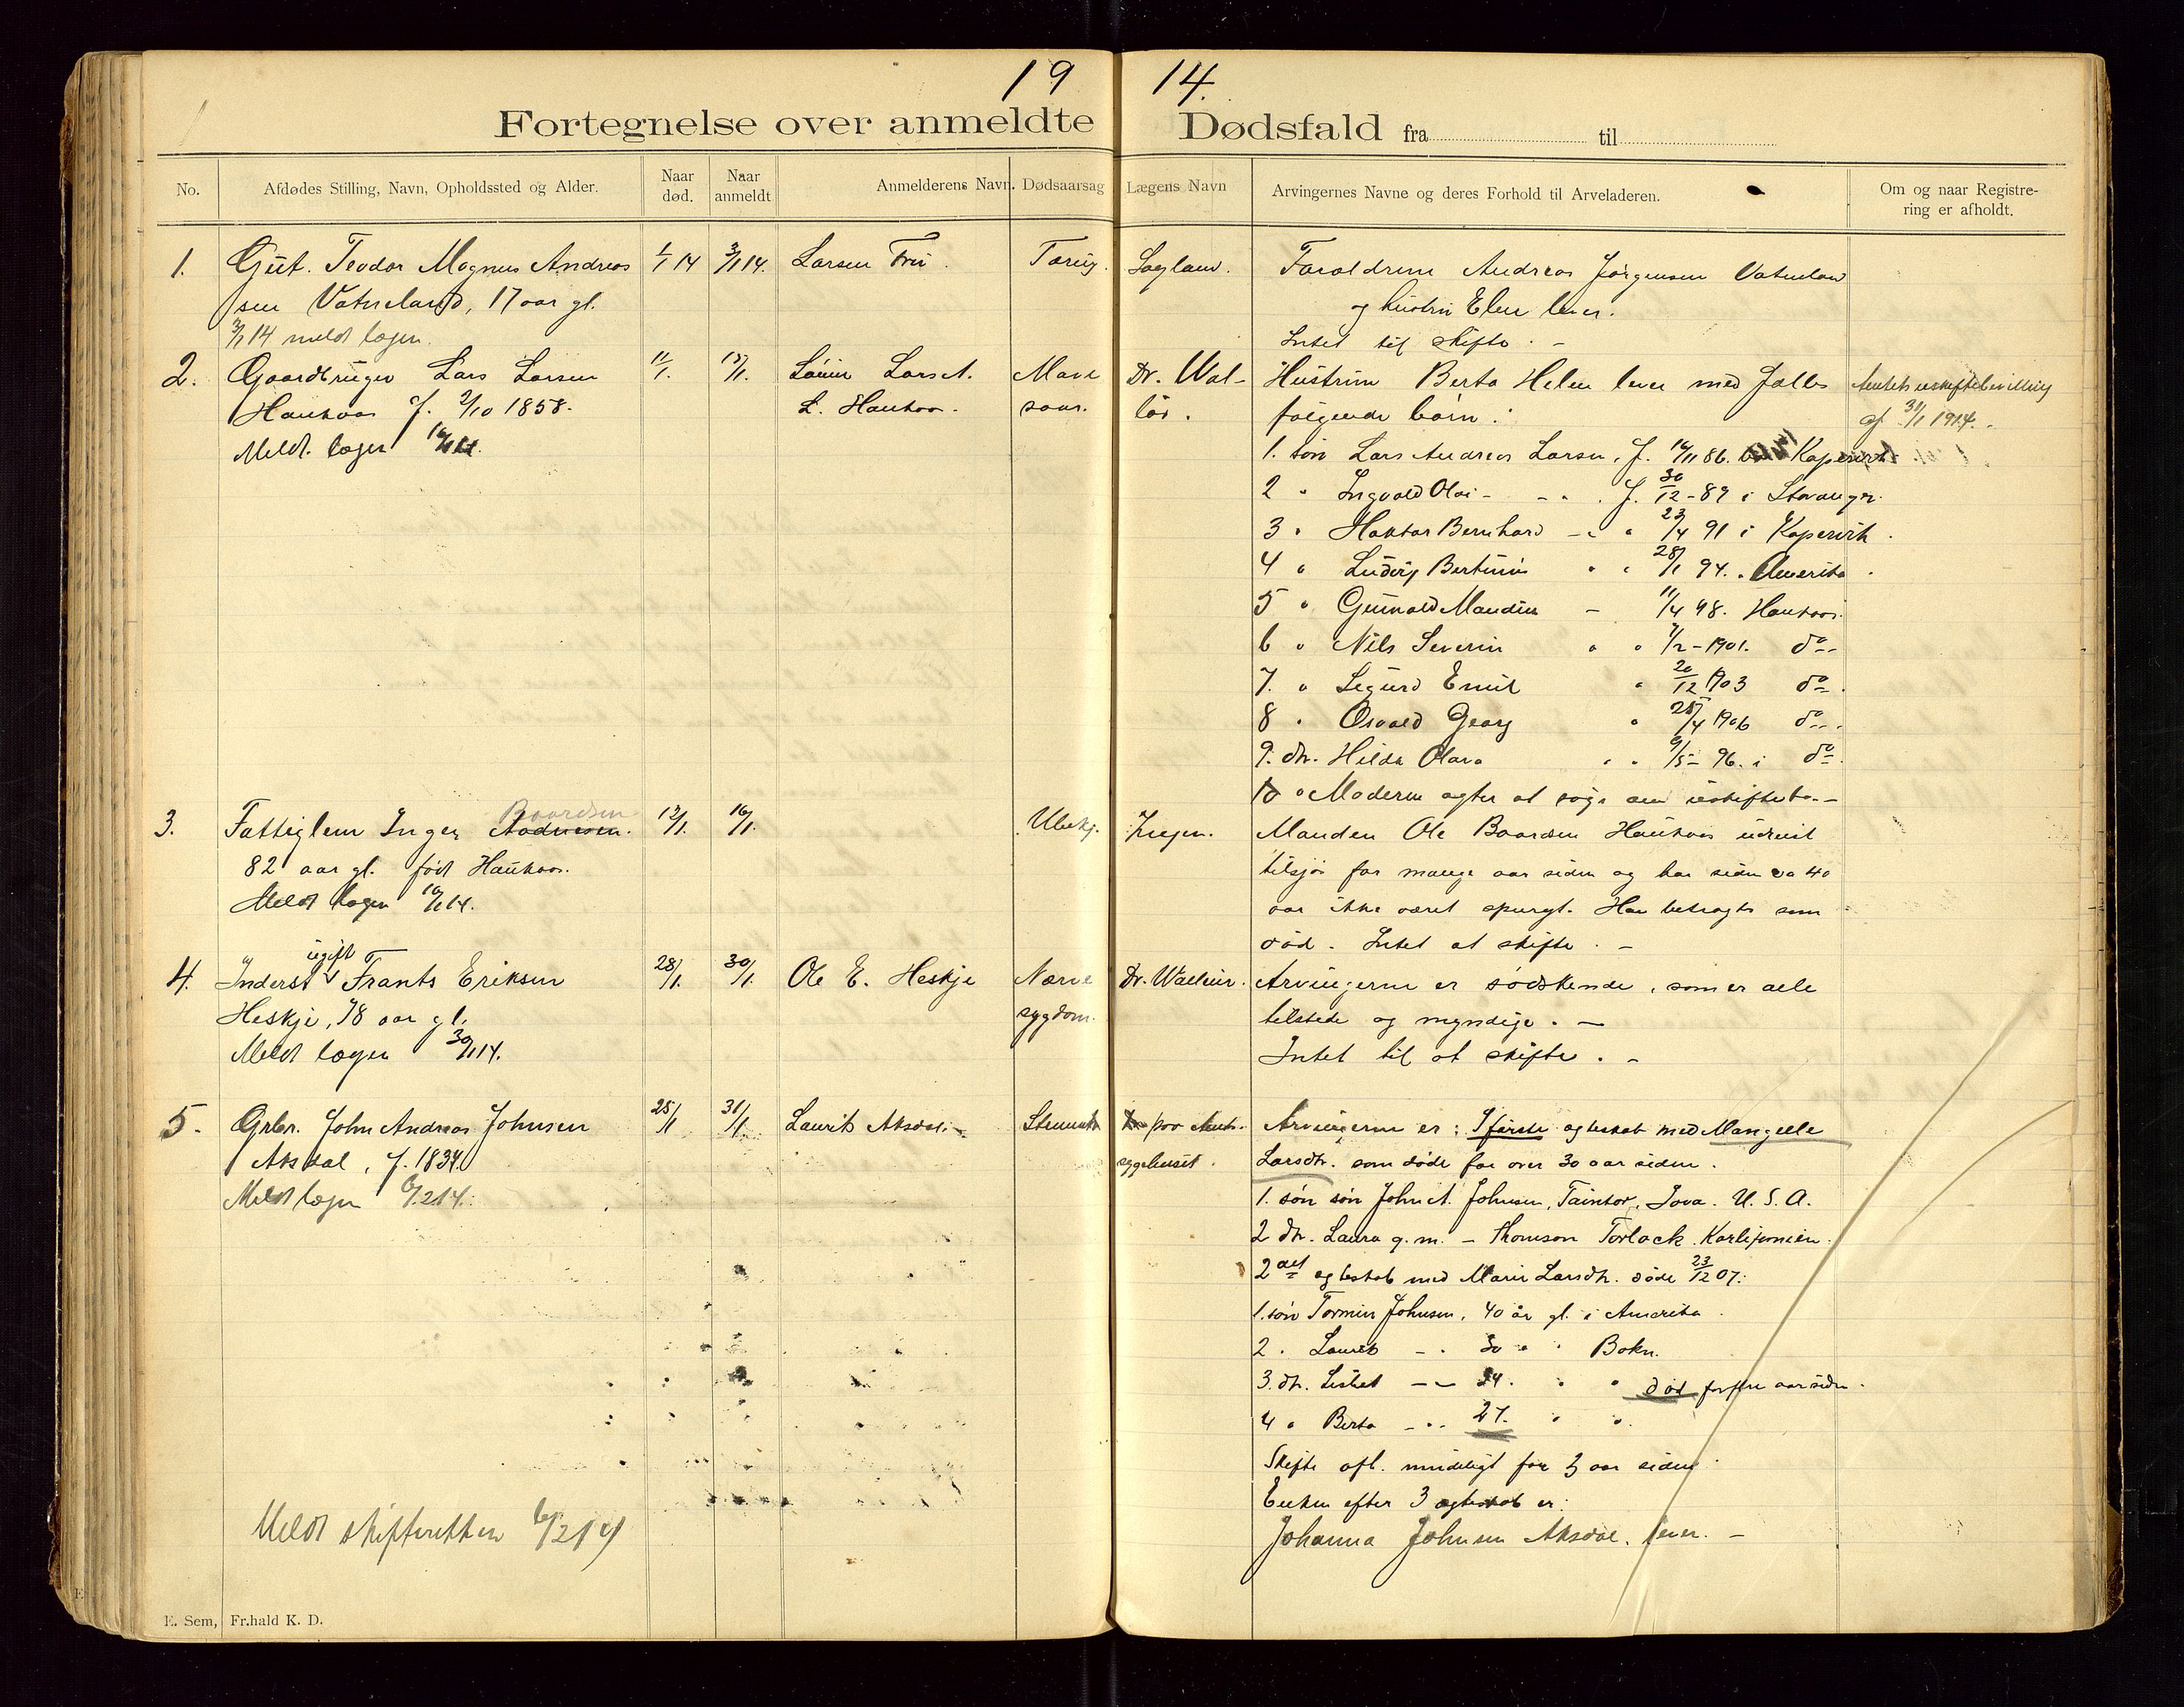 19 14.
Fortegnelse over anmeldte Dødsfald fra til
No. Afdødes Stilling, Navn, Opholdssted og Alder. Naar død. Naar anmeldt Anmelderens Navn. Dødsaarsag Lægens Navn Arvingernes Navne og deres Forhold til Arveladeren. Om og naar Registrering er afholdt.
1. Gut. Teodor Magnus Andreas 1/1 14 3/1 14. Larsen Tæring.
sen Vatneland, 17 aar gl.
3/1 14 meldt lægen.
Forældrene Andreas Jørgensen Vatnland
og hustru Elen lever.
Intet til skifte. -
2. Gaardbruger Lars Larsen 11/1. 15/1. Lars A. Mave Dr. Wal-
Haukaas f. 2/10 1858. L. Haukaas. saar. lør.
Meldt. lægen
Hustruen Berta Helene lever med fælles
følgende børn:
af 31/1 1914. -
1. søn Lars Andreas Larsen, f. 14/11 86. Kopervik
2 " Ingvald Olai - - " . f. 30/12 - 89 i Stavanger.
3 " Haktor Bernhard - " " 23/4 91 i Kopervik.
4 " Ludvig Bertinius " " 28/1 94. " Amerika.
5 " Gunvald Maudin - 11/4 98. Haukaas.
6 " Nils Severin " " 7/2 - 1901. do
7. " Sigurd Emil " 20/12 1903 do.
8 " Osvald Georg " 25/4 1906 do.
9. dtr. Hilda Olava " " 9/5 - 96. i do.
10 " Moderen agter at søge om uskiftebo. -
3. Fattiglem Inger Aadnesen. Baardsen 12/1. 16/1. Ubekj. Ingen.
82 aar gl. født Haukaas.
Meldt lægen 16/1 14.
Manden Ole Baardsen Haukaas udreist
tilsjøs for mange aar siden og har siden ca 40
aar ikke været spurgt. Han betragtes som
død. Intet at skifte. -
4. Inderst ugift Frants Eriksen 28/1. 30/1. Ole E. Heskje Nerve Dr. Wallør.
Heskje, 78 aar gl. sygdom.
Meldt lægen 30/1 14.
Arvingerne er sødskende, som er alle
tilstede og myndige. -
Intet til at skifte. -
5. Grbr. John Andreas Johnsen 25/1 31/1 Laurits Aksdal. paa Amts.
Aksdal, f. 1834. sygehuset.
Meldt lægen 6/2 14.
Arvingerne er: I første egteskab med Mangelle
Larsdtr. som døde for over 30 aar siden.
1. søn søn John A. Johnsen, Taintor, Iova. U. S. A.
2 dtr. Laura g. m. - Thomson Torlack.
2det egteskab med Marie Larsdtr. døde 23/12 07:
1. søn Tormin Johnsen, 40 år gl. i Amerika.
2. Laurits - " 30 " " Bokn.
3. dtr. Lisbet - " 24. " " død for fire aar siden.
4 " Berta - " 27. " "
Skifte afl. mindeligt for 3 aar siden.
Enken efter 3 egteskab er:
Johanna Johnsen Aksdal. lever. -
Meldt skifteretten 6/2 14
E. Sem, Fr.hald K. D.